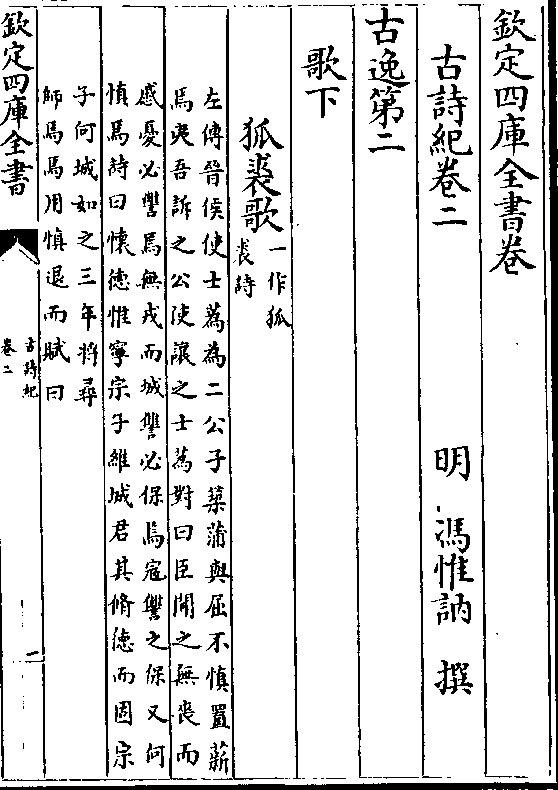 欽定四庫全書卷
古詩紀卷二
明 馮惟訥 撰
古逸第二
歌下
狐裘歌
一作狐
裘詩
左傳晉侯使士蒍為二公子築蒲與屈不慎置薪
焉夷吾訴之公使讓之士蒍對曰臣聞之無喪而
慼憂必讐焉無戎而城讐必保焉寇讐之保又何
慎焉詩曰懷德惟寧宗子維城君其脩德而固宗
子何城如之三年將尋
師焉焉用慎退而賦曰
欽定四庫全書
古詩紀
卷二
一